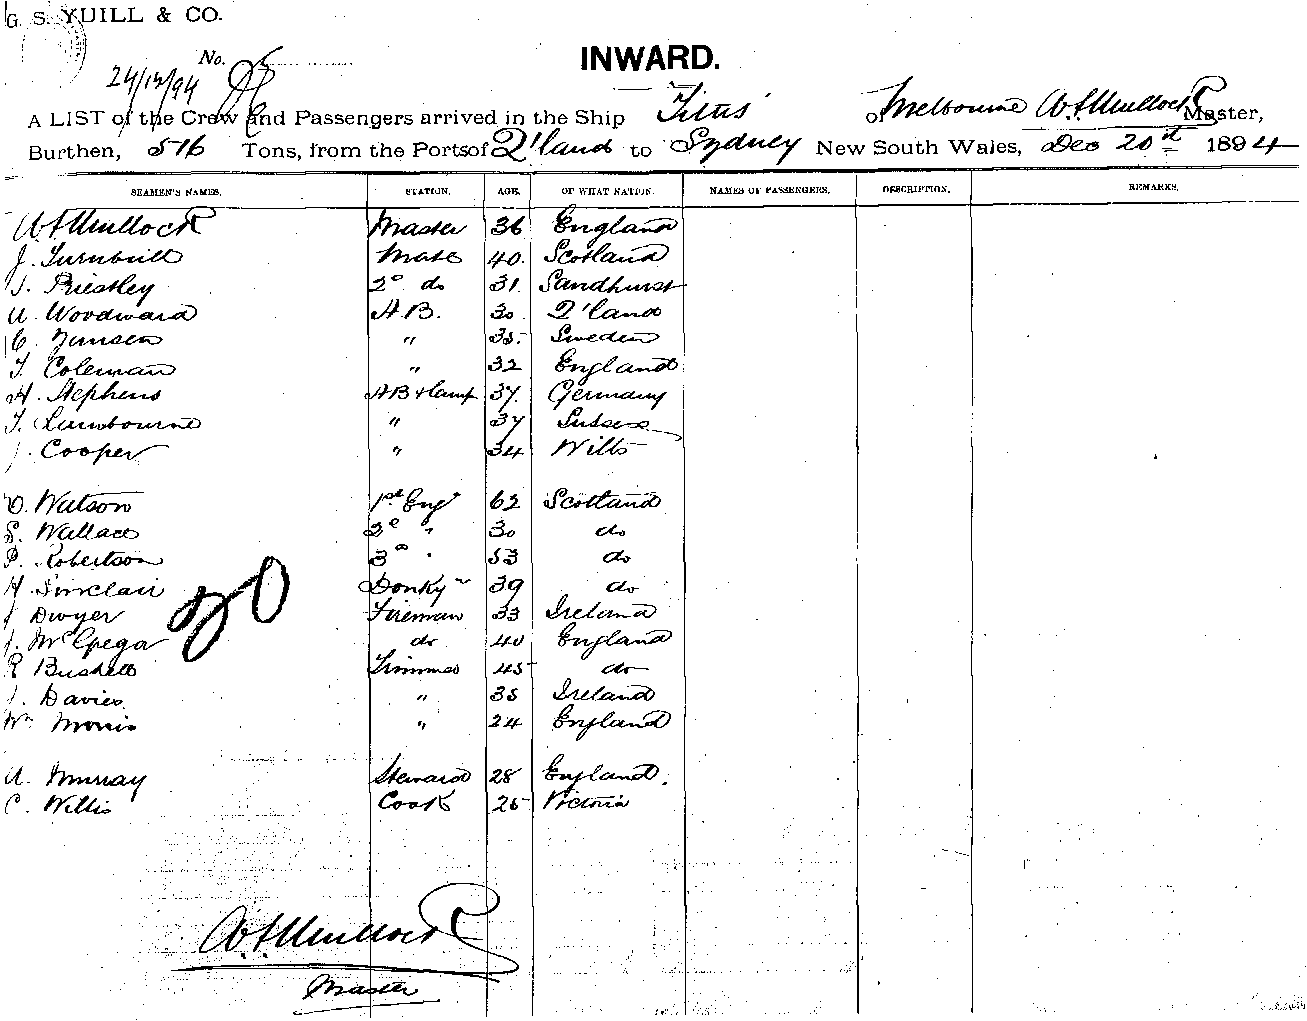 G. S. YUILL & CO.
No.
24/12/94
INWARD.
A LIST of the Crew and Passengers arrived in the Ship Titus of Melbourne W F Mullock Master,
Burthen, 516 Tons, from the Ports of Q'land to Sydney New South Wales, Dec 20th 1894
SEAMEN'S NAMES. STATION. AGE. OF WHAT NATION. NAMES OF PASSENGERS. DESCRIPTION. REMARKS.
W F Mullock Master 36 England
J. Turnbull Mate 40. Scotland
Priestley 2º do 31. Sandhurst
A. Woodward A.B. 30 Q'land
C. Jansen " 35. Sweden
T. Coleman " 32 England
H. Stephens AB & lamp 37. Germany
T. " 37 Sussex
J. Cooper " 34 Wilts
D. Watson 1st Eng 62 Scotland
S. Wallace 2º " 30 do
P. Robertson 3º " 53 do
H. Sinclair Donky 39 do
J Dwyer Fireman 33 Ireland
J. McGregor do 40 England
R Bushell Trimmer 45 do
J. Davies " 35 Ireland
Wm Morris " 24 England
20
A. Murray Steward 28 England.
C. Willis Cook 25 Victoria
W F Mullock
Master